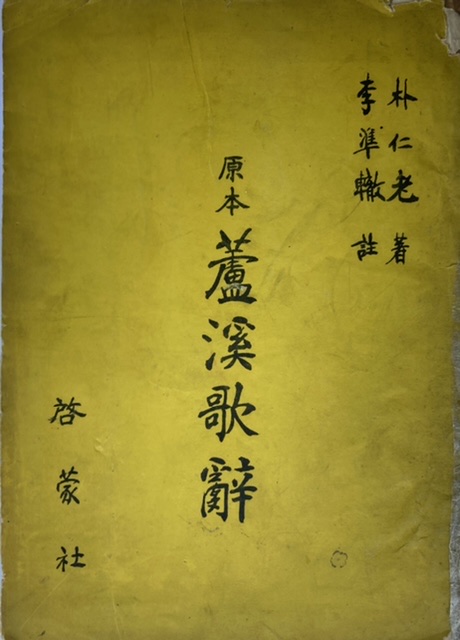 朴仁老 著
李準轍 註
原本 蘆溪歌辭
啓蒙社